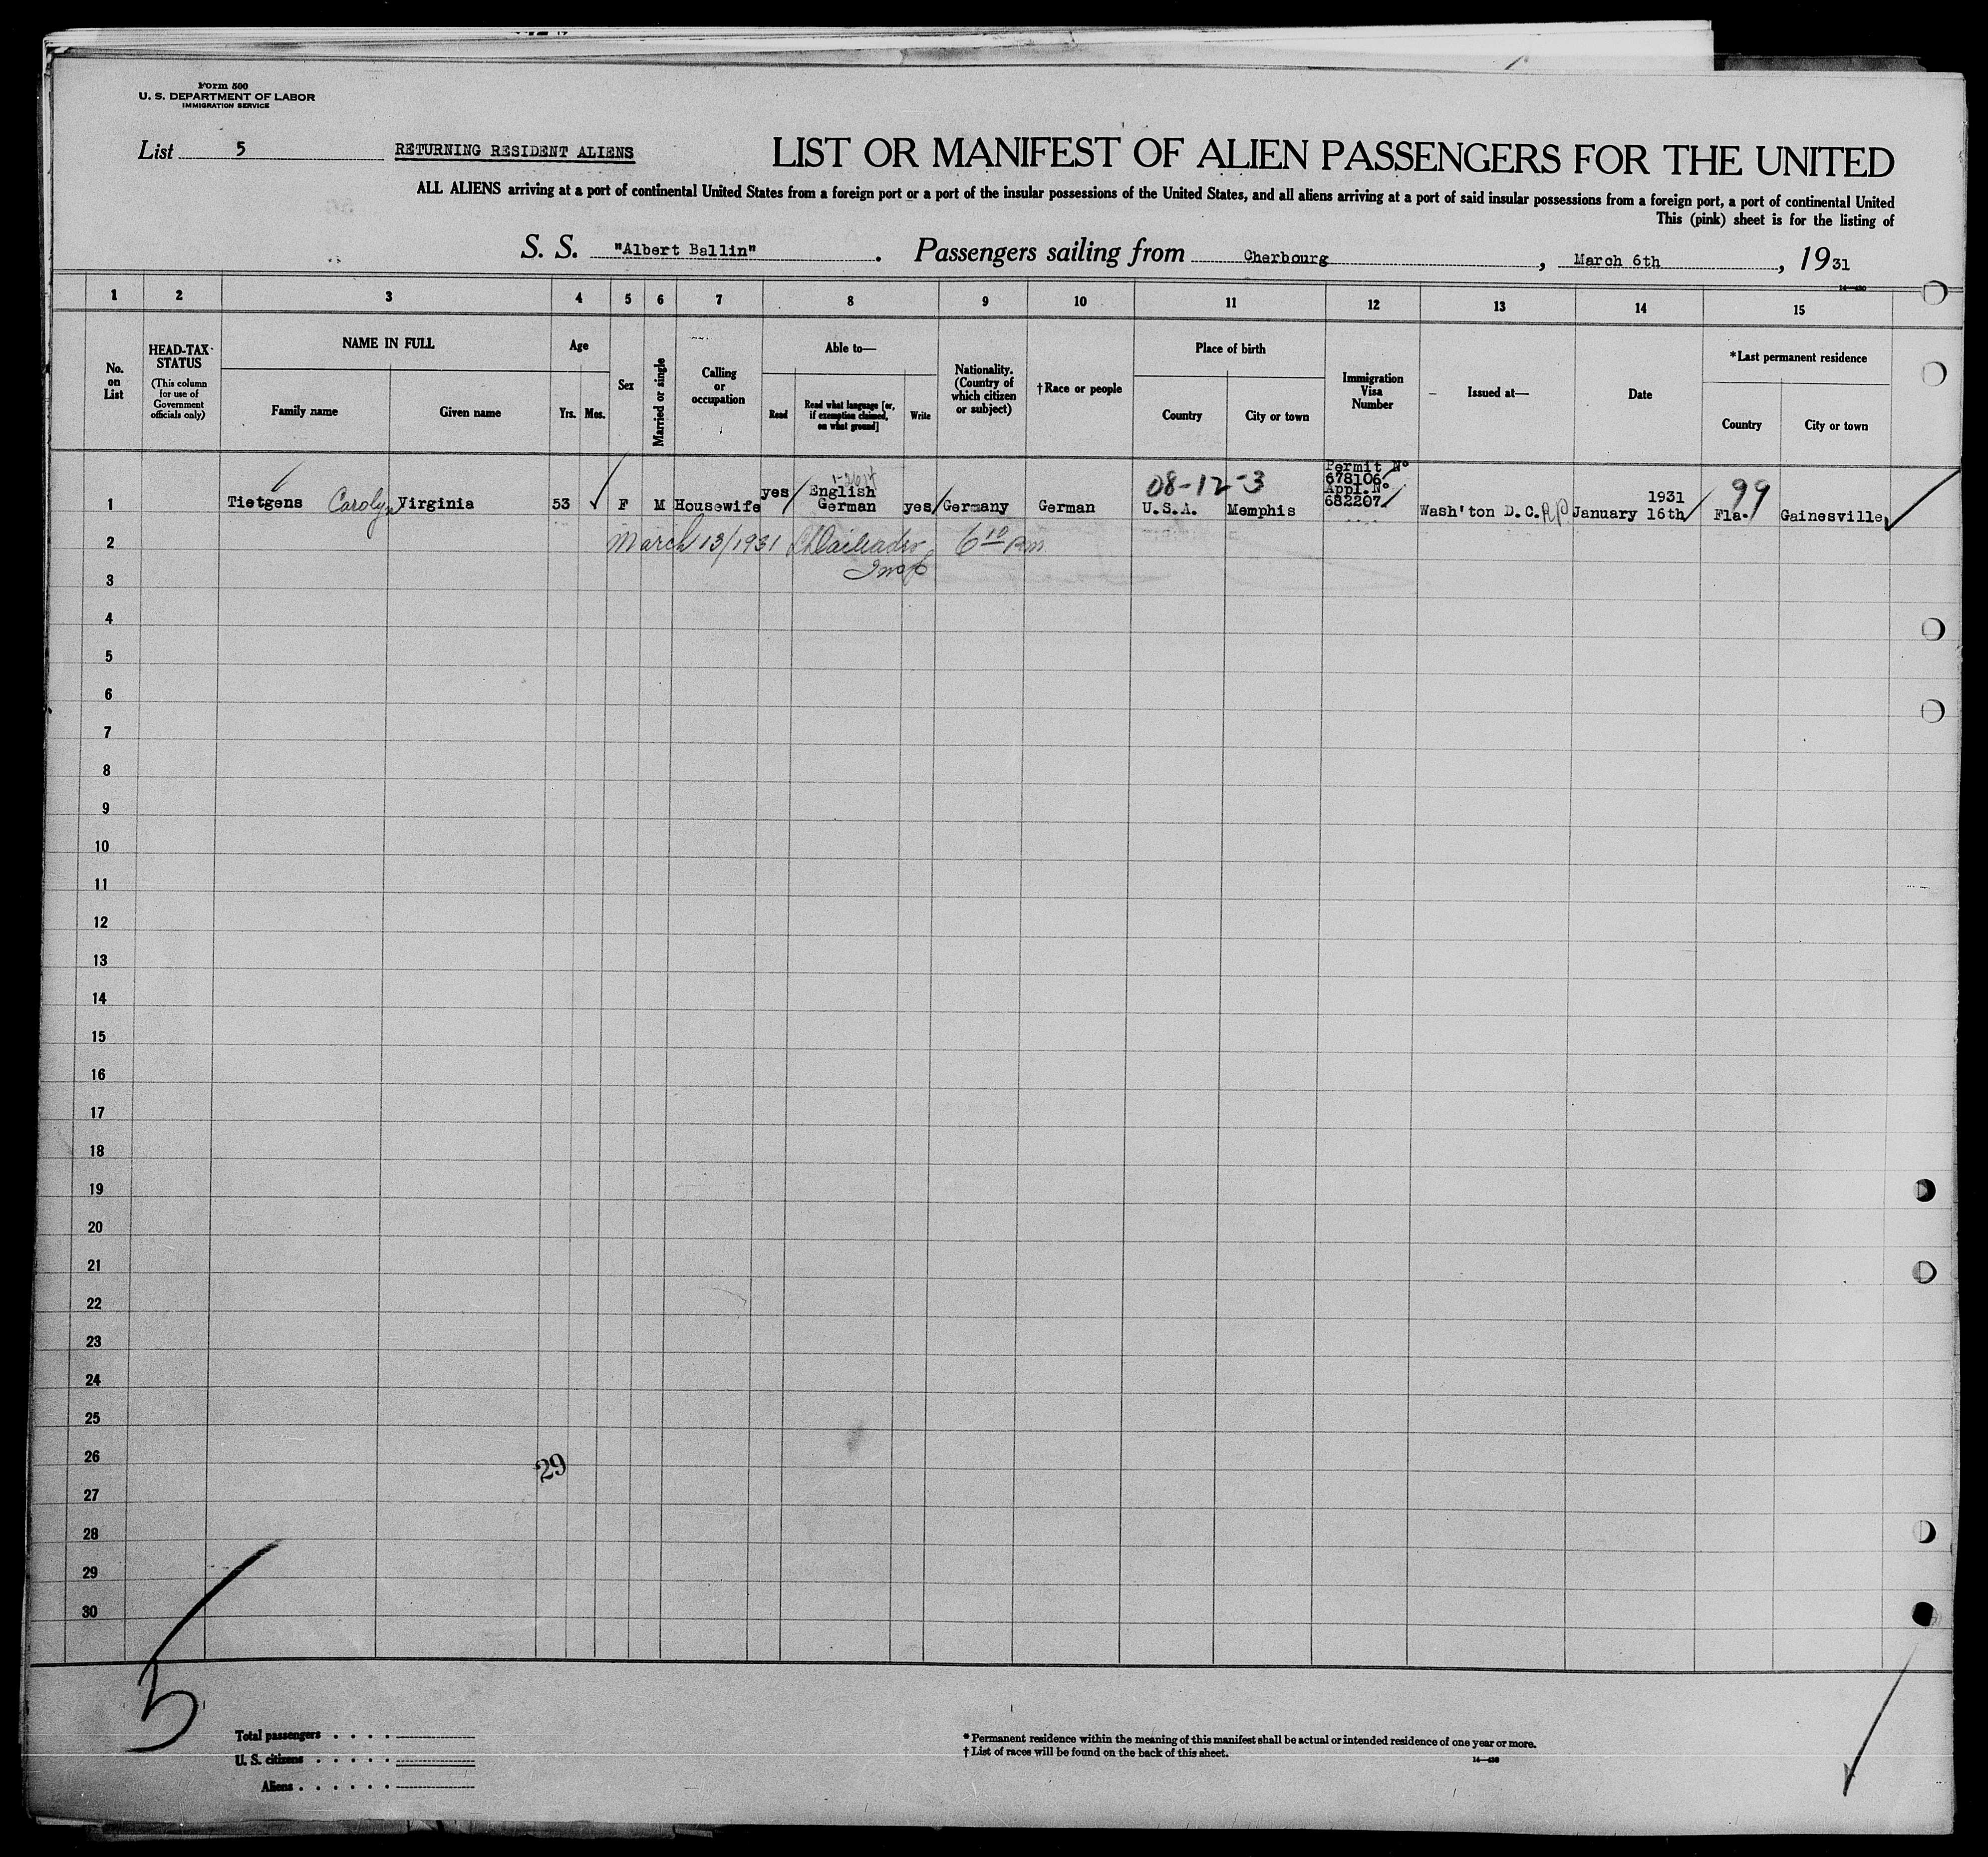 Form 500
U. S. DEPARTMENT OF LABOR
IMMIGRATION SERVICE
List 5 RETURNING RESIDENT ALIENS LIST OR MANIFEST OF ALIEN PASSENGERS FOR THE UNITED
ALL ALIENS arriving at a port of continental United States from a foreign port or a port of the insular possessions of the United States, and all aliens arriving at a port of said insular possessions from a foreign port, a port of continental United
This (pink) sheet is for the listing of
S. S. "Albert Ballin". Passengers sailing from Cherbourg, March 6th, 1931
1 2 3 4 5 6 7 8 9 10 11 12 13 14 15
No. on List
HEAD-TAX STATUS
(This column for use of Government officials only)
NAME IN FULL
Family name Given name
Age
Yrs. Mos.
Sex
Married or single
Calling or occupation
Able to—
Read
Read what language [or, if exemption claimed, on what ground]
Write
Nationality. (Country of which citizen or subject)
†Race or people
Place of birth
Country City or town
Immigration Visa Number
Issued at—
Date
*Last permanent residence
Country City or town
1 Tietgens Carolyn Virginia 53 F M Housewife yes English German yes Germany German 08-12-3 U.S.A. Memphis Permit No 678106 Appl.No 682207 Wash'ton D.C. RP January 16th 1931 99 Fla. Gainesville
2 March 13/1931 6 10 P.m
Insp
3
4
5
6
7
8
9
10
11
12
13
14
15
16
17
18
19
20
21
22
23
24
25
26
29
27
28
29
30
5
Total passengers
U. S. citizens
Aliens
*Permanent residence within the meaning of this manifest shall be actual or intended residence of one year or more.
†List of races will be found on the back of this sheet.